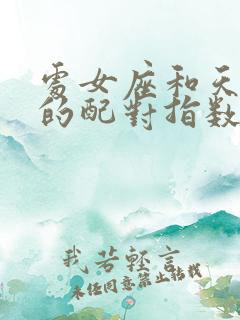 處女座和天
的配對指數
我若輕言
未經同意禁止轉載